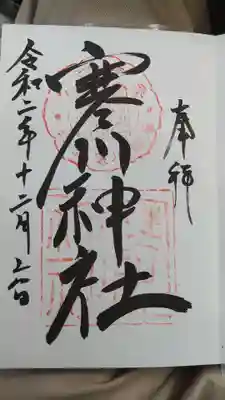 奉拝
寒川神社
令和二年十二月